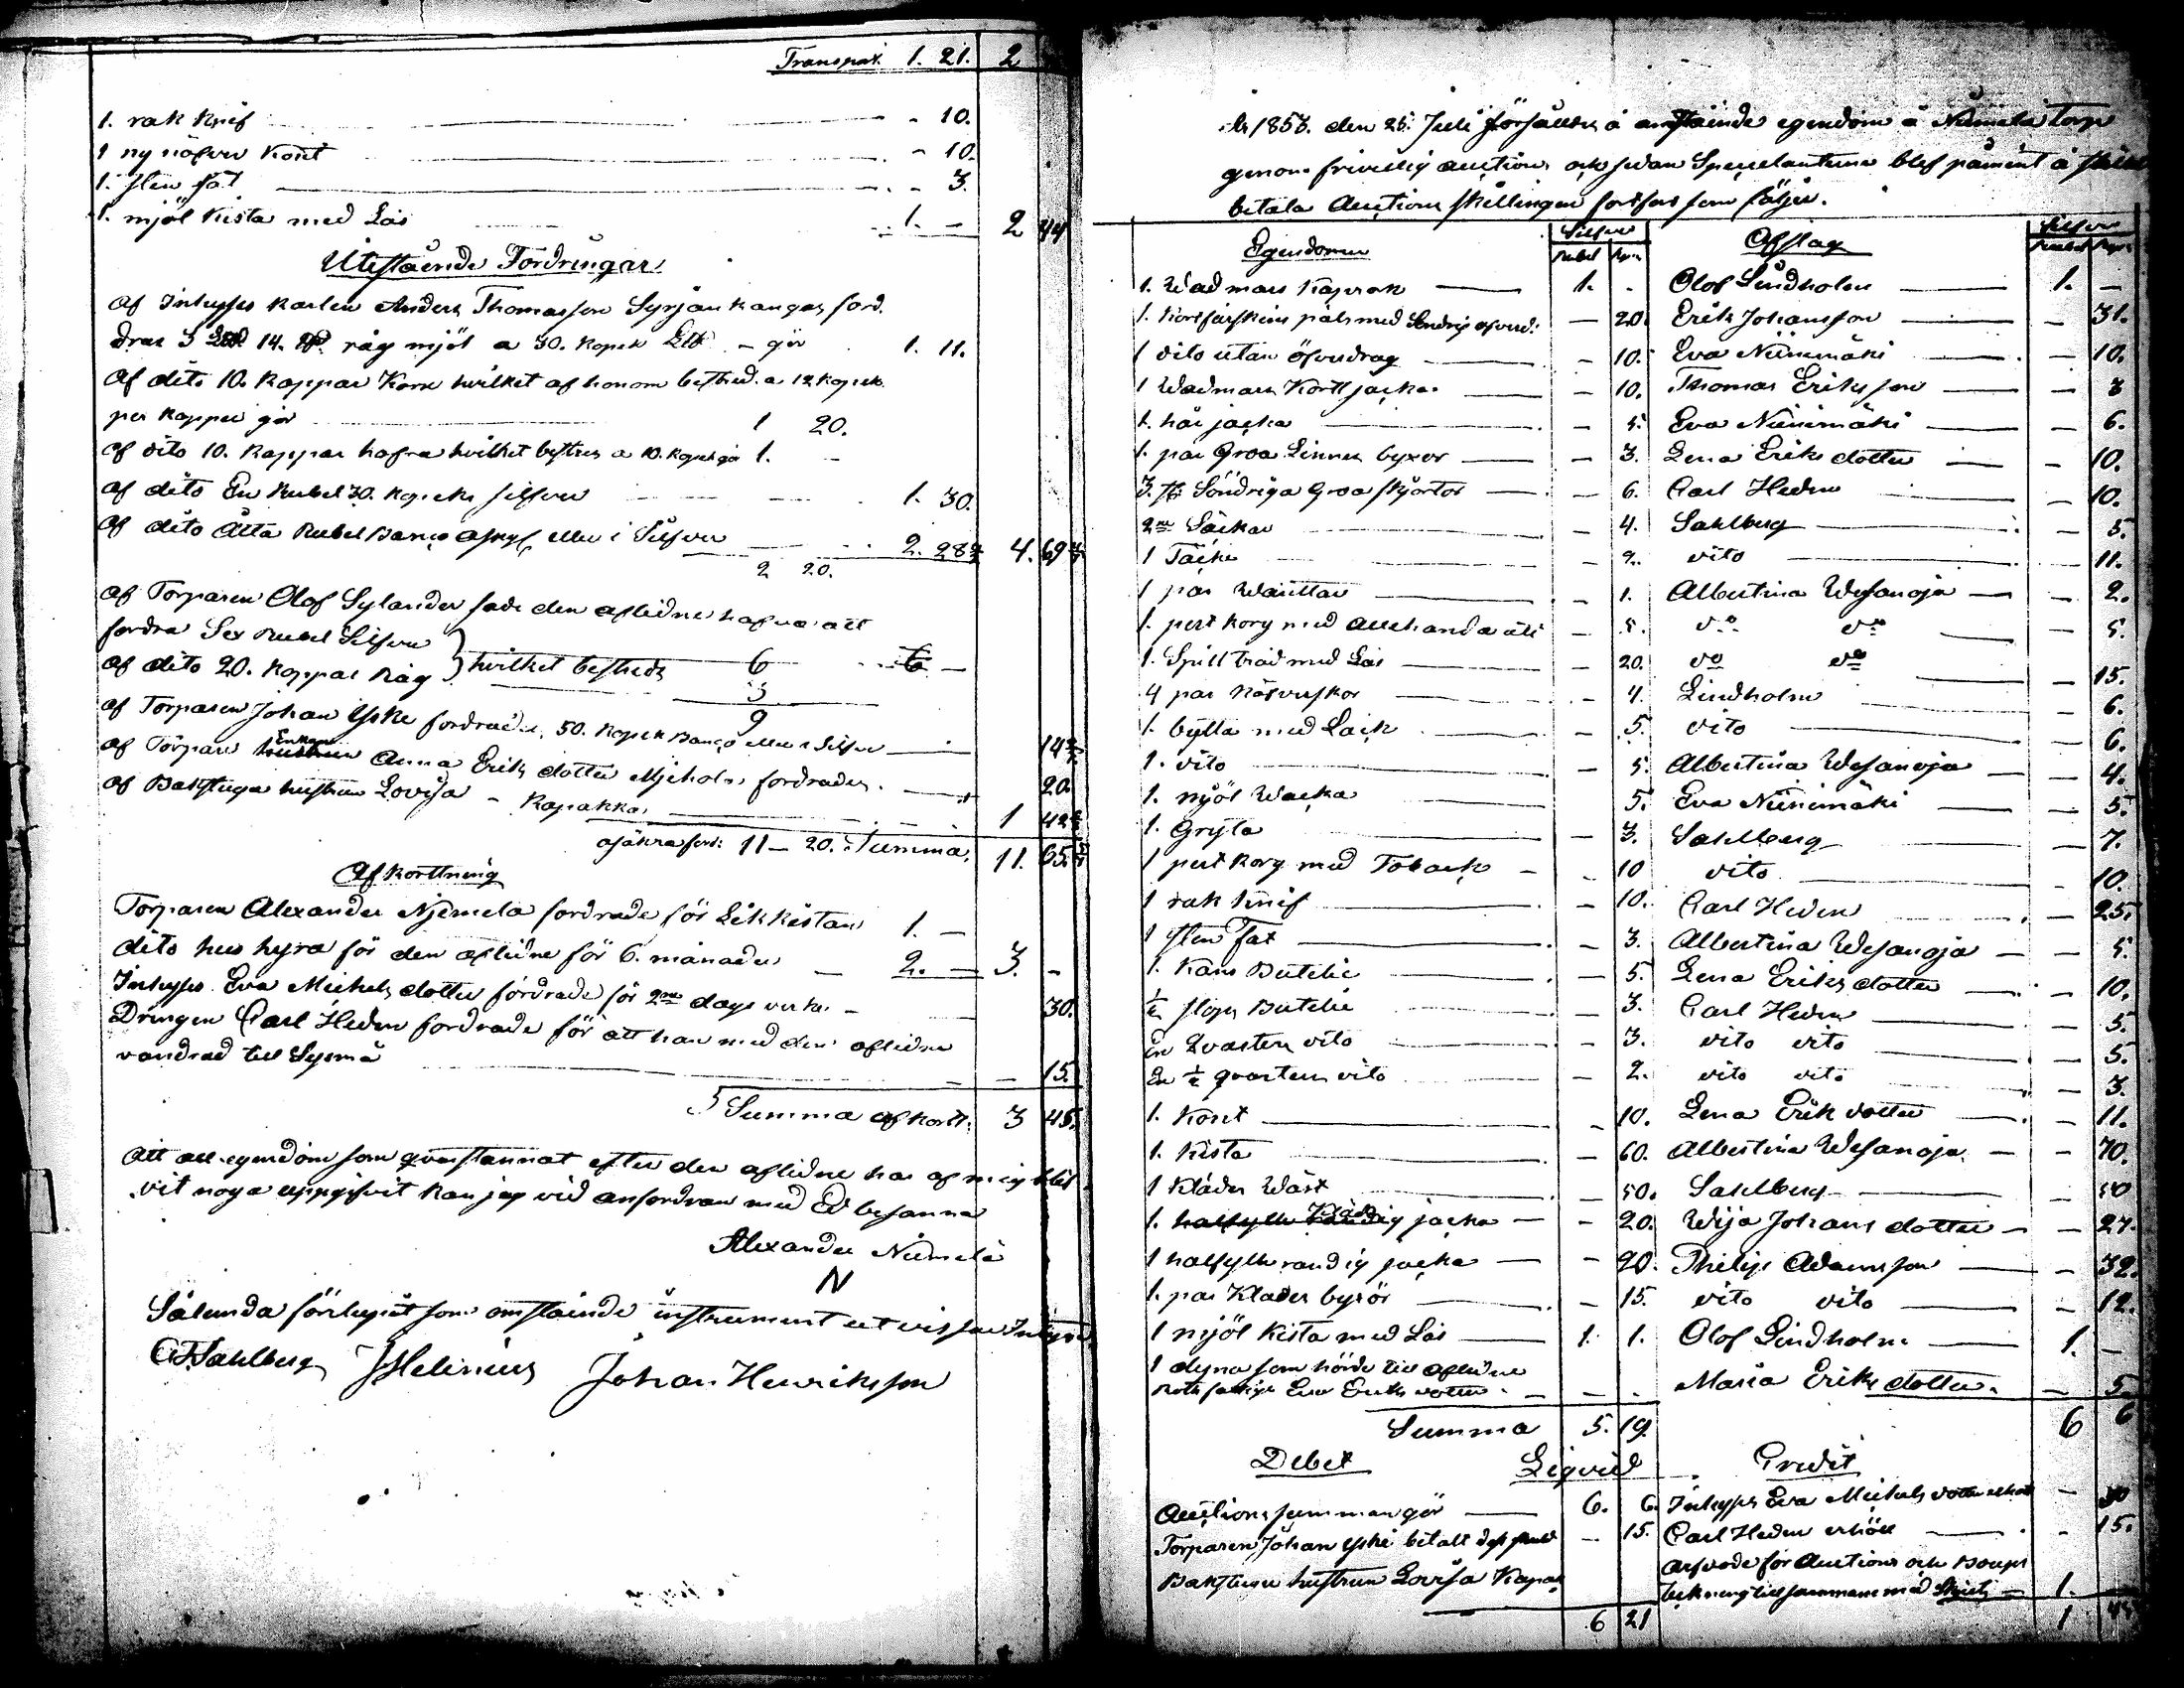 Transport. 1. 21. 2
1. rak Knif - 10.
1 ny näfver Kont - 10.
1. sten fat - 3.
1. mjöl Kista med Lås 1. - 2 44
Utestående Fordringar
Af Inhyses karlen Anders Thomasson Syrjänkangas ford.
dras 3 14. råg mjöl a 30. Kopek gör 1. 11.
Af dito 10. Kappar Korn hvilket af honom bestred. a 12 Kopek
per Kappe gör 1 20.
Af dito 10. Kappar hafra hvilket bestreds a 10. Kopek gör 1. -
Af dito En Rubel 30. Kopek silfver 1. 30.
Af dito Åtta Rubel Banco eller i Silfver 2. 28 4. 69
2 20.
Af Torparen Olof Sylander sade den aflidne hafva att
fordra Sex Rubel Silfver
Af dito 20. Kappar Råg hvilket bestreds 6 6 -
3
9
Af Torparen Johan Yske fordrades 50. Kopek Banco eller i Silfver 14
Af Torpare Enkan hustrun Anna Eriks dotter Mjeholm fordrades. 20.
Af Bakstuga hustrun Lovisa Kapakka 1 42
osäkra ford: 11 - 20. Summa 11. 65
Afkorttning
Torparen Alexander Njemelä fordrade för Likkistan 1. -
dito hus hyra för den aflidne för 6. månader 2. - 3. -
Inhyses Eva Michels dotter fordrade för 2ne dags verke - 30.
Drängen Carl Heden fordrade för att han med den aflidne
vandrad till Sysmä 15.
Summa afkortt: 3 45.
Att all egendom som qvarstannat efter den aflidne har af mig blif-
vit noga uppgifvit kan jag vid anfordran med Ed besanna
Alexander Niemelä
N
Sålunda förlupit som omstående instrument utvisar Intyga
Sahlberg J Helenius Johan Henriksson
År 1853. den 25. Juli försåldes å omstående egendom å Niemelä Torp
genom frivillig auction och sedan Speculanterne blef påmint å
betala Auctions skillingen fortfors som följer.
Egendomen Silfver Afslag Silfver
Rubel Kop. Rubel Kop.
1. Wadmars Kaprok 1. - Olof Lindholm 1. -
1. fårskins päls med Söndrig öfverd: - 20. Erik Johansson - 31.
1 dito utan öfverdrag - 10. Eva Niinimäki - 10.
1 Wadmars Kortt jacka - 10. Thomas Eriksson - 3
1. hår jacka - 5. Eva Niinimäki - 6.
1. par Groa Linnes byxor - 3. Lena Eriks dotter - 10.
3. st: Söndriga Groa skjortor - 6. Carl Heden - 10.
2ne Säckar - 4. Sahlberg - 5.
1 Täcke - 2. dito 11.
1 par Wanttar - 1. Albertina Wesanoja - 2.
1. pert Korg med allehanda uti - 5. do do 5.
1. Spill bräd med Lås - 20. do do 15.
4 par Näfverskor - 4. Lindholm 6.
1. bytta med Lock - 5. dito 6.
1. dito - 5. Albertina Wesanoja - 4.
1. mjöl Wacka 5. Eva Niinimäki - 5.
1. Gryta - 3. Sahlberg - 7.
1 pert Korg med Toback - 10 dito - 10.
1 rak Knif - 10. Carl Heden - 25.
1 sten Fat - 3. Albertina Wesanoja - 5.
1. Kans Butelie - 5. Lena Eriks dotter - 10.
½ stops Butelie - 3. Carl Heden - 5.
En Qvarters dito - 3. dito dito - 5.
En ½ qvarters dito - 2. dito dito - 3.
1. Kont - 10. Lena Erik dotter - 11.
1. Kista - 60. Albertina Wesanoja - 70.
1 Klädes Wäst - 50. Sahlberg - 50
1. halfylle jacka - 20. Wija Johans dotter - 27.
1 halfylle randig jacka - 20. Philip Adamsson - 32.
1. par Klädes byxor - 15. dito dito - 12.
1 mjöl Kista med Lås 1. 1. Olof Lindholm 1. -
1 dyna som hörde till aflidne
Eva Eriks dotter - - Maria Eriks dotter - 5.
Summa 5. 19. 6 6
Debet Liqvid Credit
Auctions summan gör 6. 6. Inhyses Eva Michels dotter - 30
Torparen Johan Yske betalt dess skuld - 15. Carl Heden erhöll - 15.
Bakstuge hustrun Lovisa Kapak arfvode för Auctions och Boupp
teckning tillsammans med 1. -
6 21 1 45